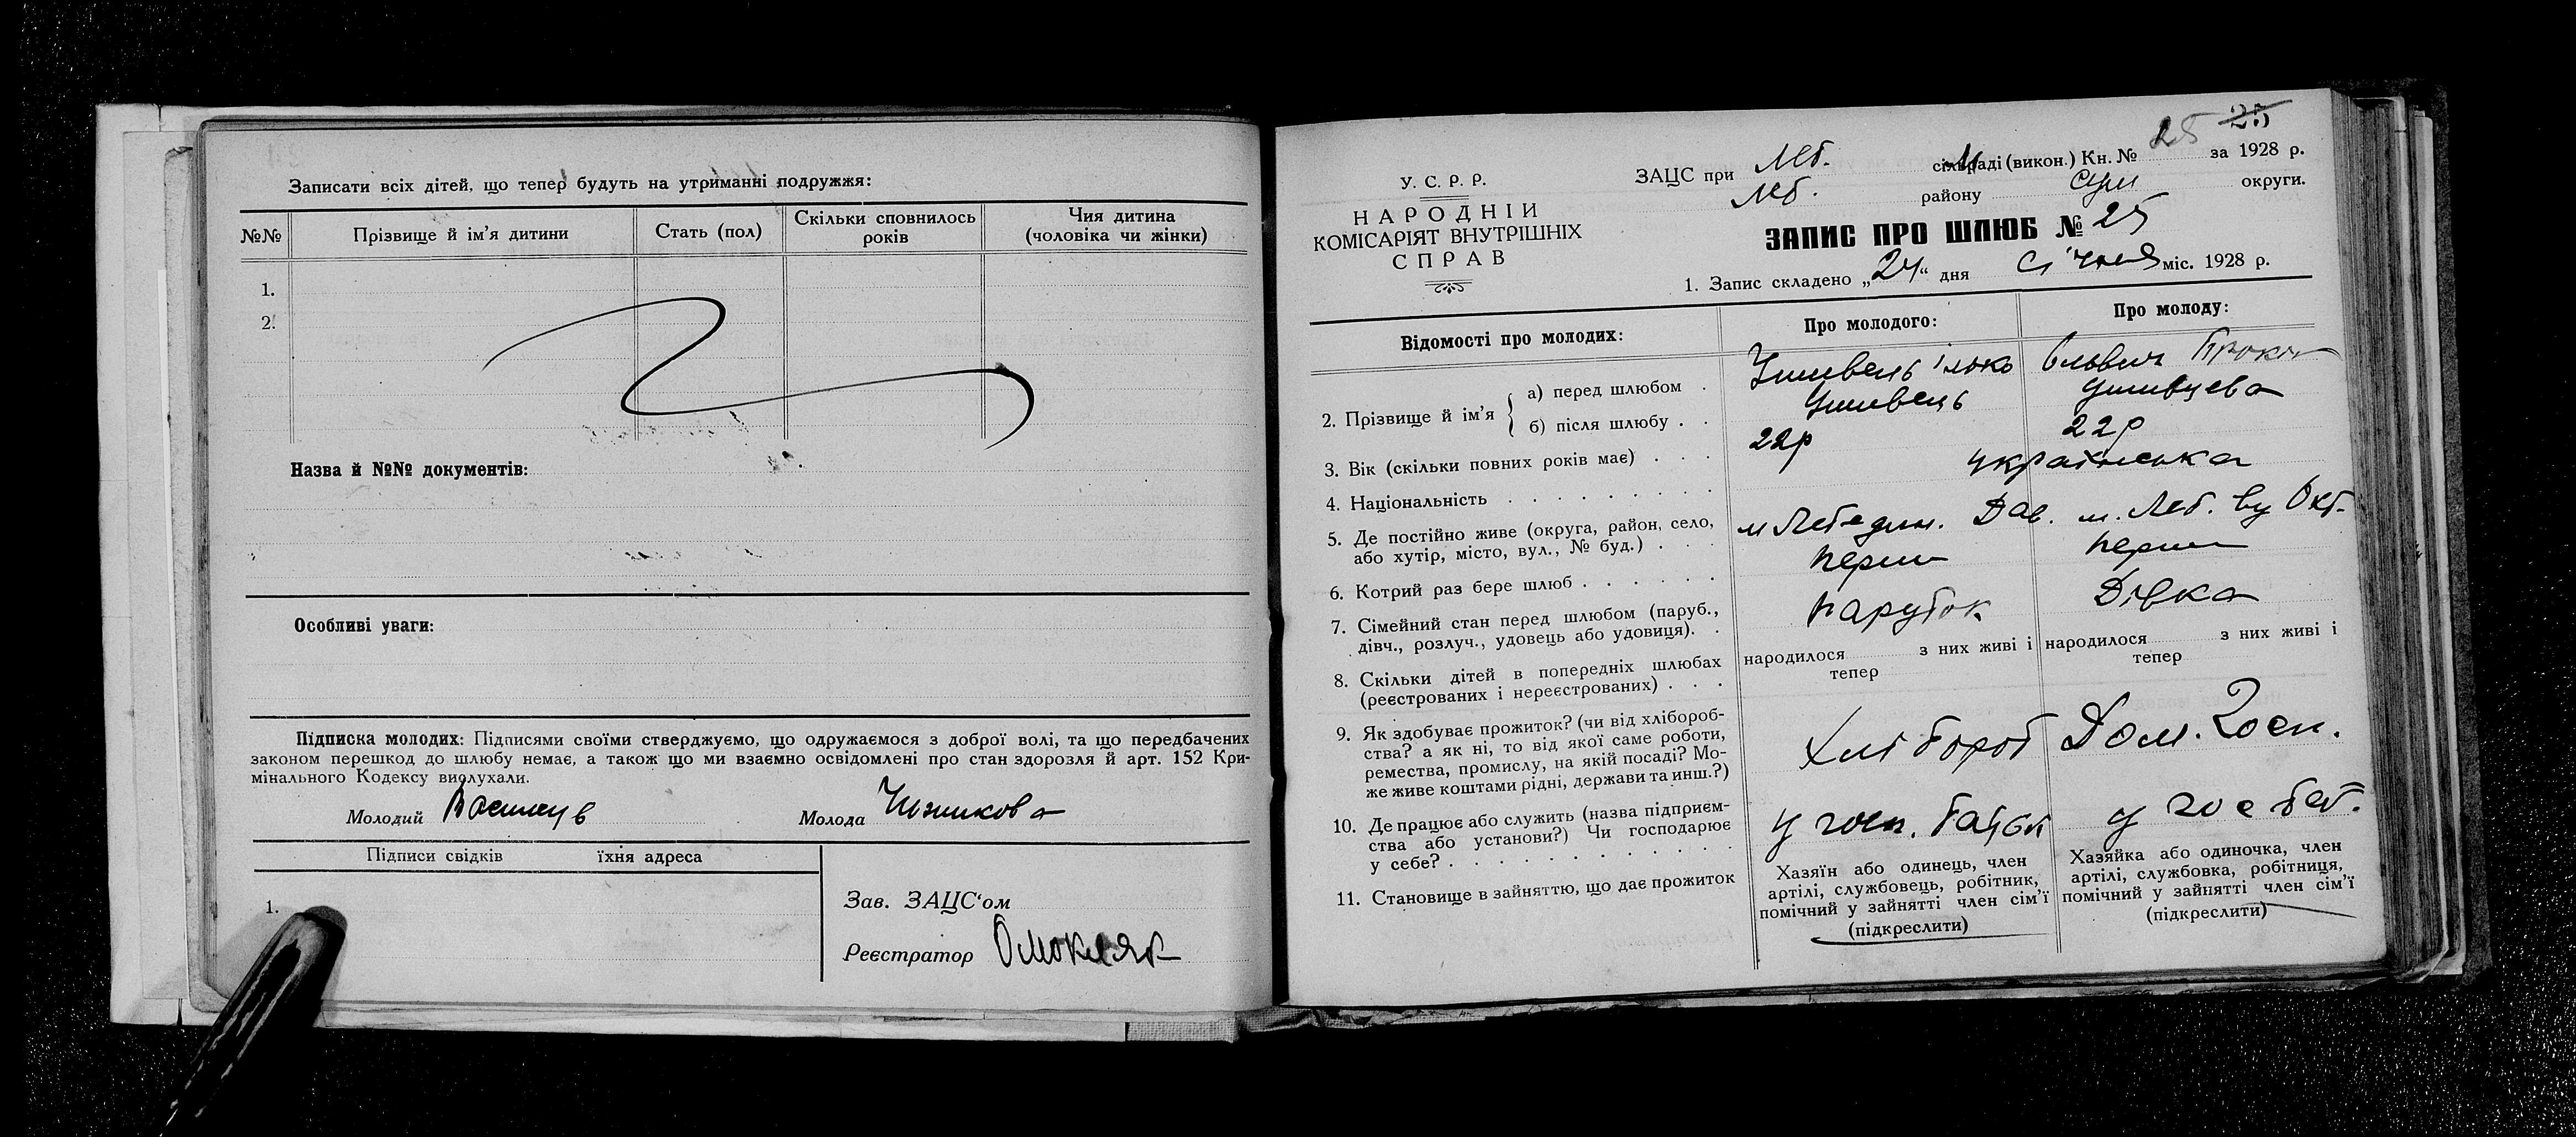 Записати всіх дітей, що тепер будуть на утриманні подружжя:
№№ Прізвище й ім'я дитини Стать (пол) Скільки сповнилось років Чия дитина (чоловіка чи жінки)
1.
2.
Назва й №№ документів:
Особливі уваги:
Підписка молодих: Підписями своїми стверджуємо, що одружаємося з доброї волі, та що передбачених
законом перешкод до шлюбу немає, а також що ми взаємно освідомлені про стан здоровля й арт. 152 Кри-
мінального Кодексу вислухали.
Молодий Молода
Підписи свідків їхня адреса
1.
Зав. ЗАЦС'ом
Реєстратор
25 25
У. С. Р. Р.
НАРОДНІЙ
КОМІСАРІЯТ ВНУТРІШНІХ
СПРАВ
ЗАЦС при Леб. сільраді (викон.) Кн. № за 1928 р.
Леб. району Сум округи.
ЗАПИС ПРО ШЛЮБ № 25
1. Запис складено „24" дня Січня міс. 1928 р.
Відомості про молодих: Про молодого: Про молоду:
2. Прізвище й ім'я
а) перед шлюбом
б) після шлюбу
3. Вік (скільки повних років має) 22р 22р
4. Національність українська
5. Де постійно живе (округа, район, село,
або хутір, місто, вул., № буд.) м Лебедин. м. Леб. ву Окт.
6. Котрий раз бере шлюб перш перш
7. Сімейний стан перед шлюбом (паруб.,
дівч., розлуч., удовець або удовиця). парубок Дівка
8. Скільки дітей в попередніх шлюбах
(реєстрованих і нереєстрованих)
народилося з них живі і
тепер
народилося з них живі і
тепер
9. Як здобуває прожиток? (чи від хлібороб-
ства? а як ні, то від якої саме роботи,
ремества, промислу, на якій посаді? Мо-
же живе коштами рідні, держави та инш.?)
Хлібороб Дом. Госп.
10. Де працює або служить (назва підприєм-
ства або установи?) Чи господарює
у себе?
у госп. батьк
11. Становище в зайняттю, що дає прожиток
Хазяїн або одинець, член
артілі, службовець, робітник,
помічний у зайнятті член сім'ї
(підкреслити)
Хазяйка або одиночка, член
артілі, службовка, робітниця,
помічний у зайнятті член сім'ї
(підкреслити)